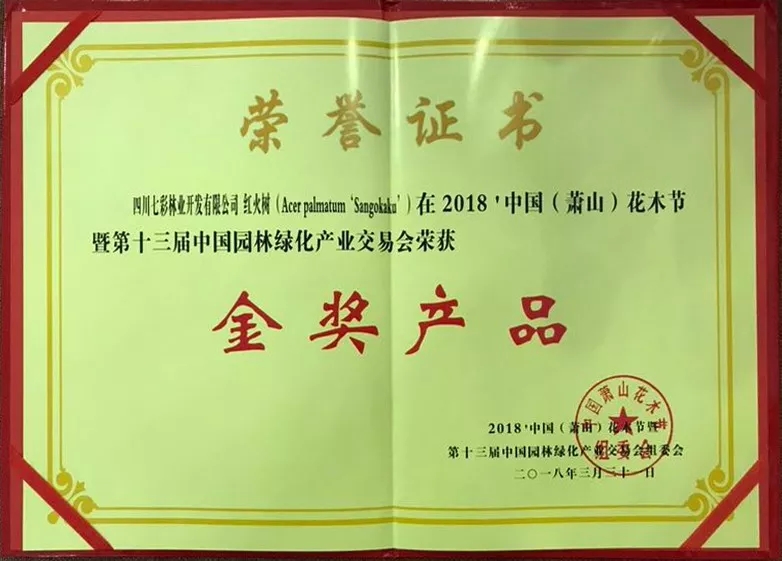 荣誉证书
四川七彩林业开发有限公司 红火树（Acer palmatum‘Sangokaku’）在2018'中国（萧山）花木节
暨第十三届中国园林绿化产业交易会荣获
金奖产品
2018'中国（萧山）花木节暨
第十三届中国园林绿化产业交易会组委会
二〇一八年三月三十一日
中国萧山花木节
组委会